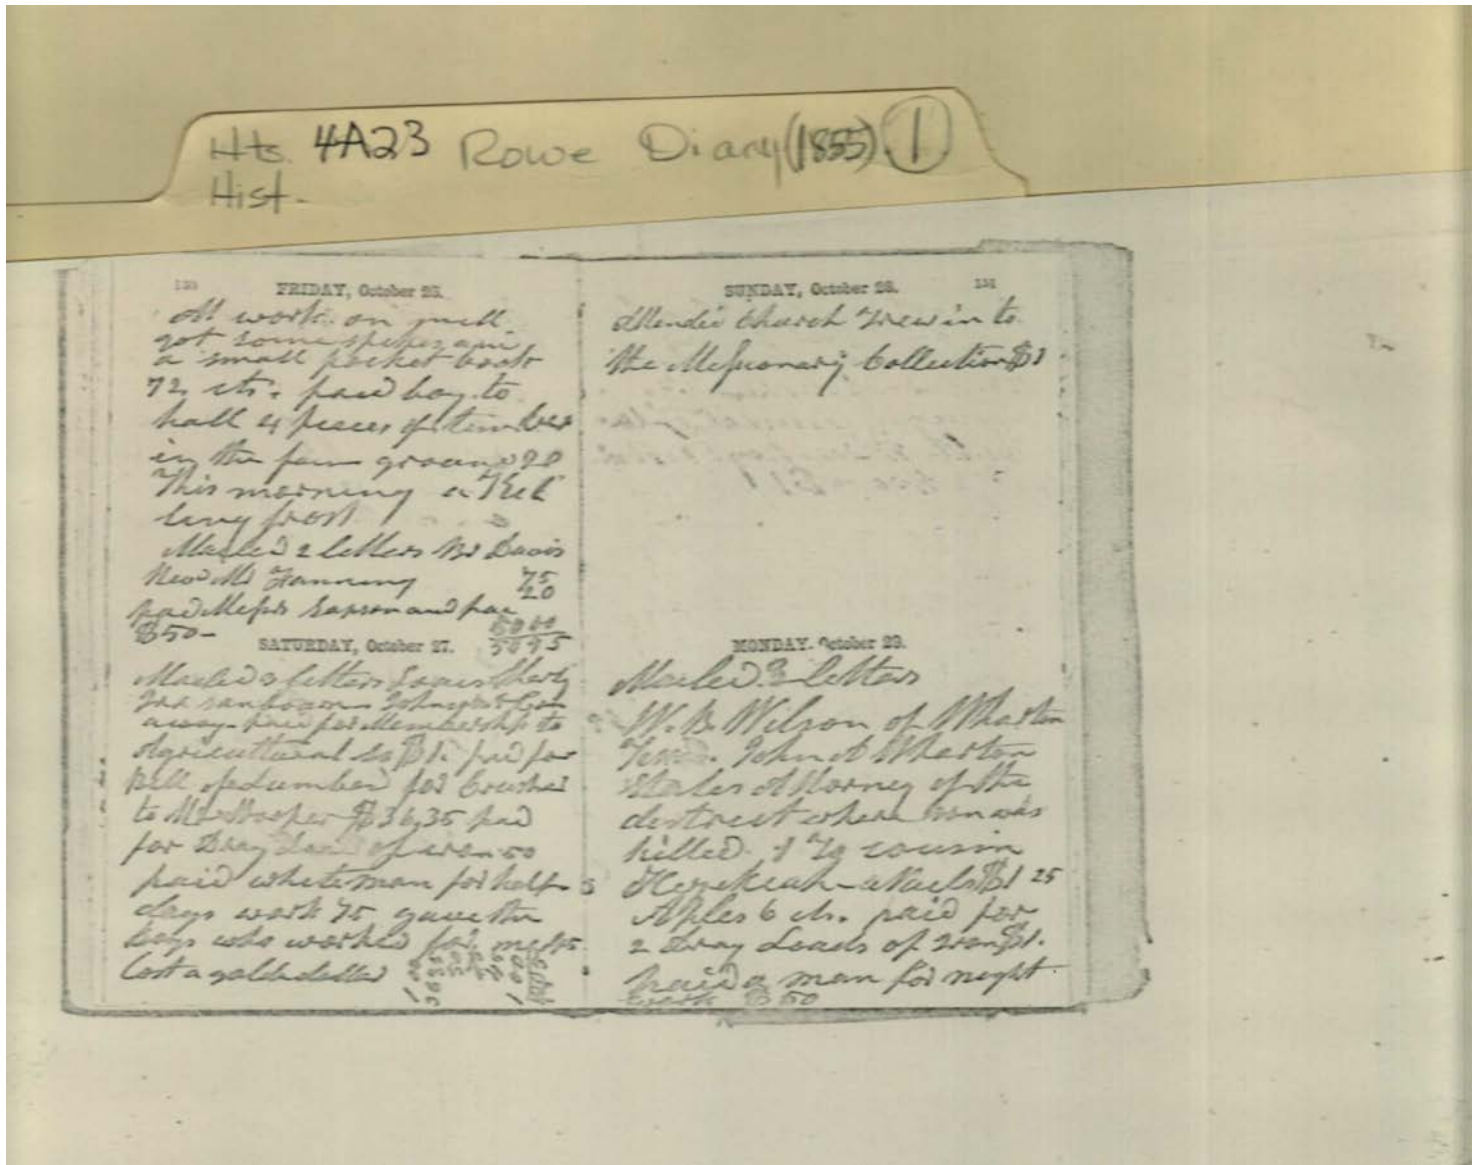 Hts. 4A23 Rowe Diary (1855). 1
Hist.
150
FRIDAY, October 26.
At work on mill.
got some spikes and
a small pocket book
72 cts. paid boy to
hall 4 pieces of timber
in the fair ground 20
This morning a Kil
ling frost
Mailed 2 letters Br Davis
Revd Mr Fanning 75
20
paid Messrs and
$50 - 5000
5095
SATURDAY, October 27.
Mailed 3 letters
away - paid for Membership to
Agricultural So $1. paid for
Bill of Lumber for Crusher
to Mr Hooper $36,35 paid
for Dray Load of iron 50
paid white man for half
days work 75 gave the
boys who worked for me
Lost a gold dollar
SUNDAY, October 28.
151
Attended Church Threw in to
the Missionary Collection $1
MONDAY, October 29.
Mailed 3 letters
W. B. Wilson of Wharton
Texas. John A Wharton
States Attorney of the
destrect where son was
killed. 1 To cousin
Hezekiah - Nails $1 25
Aples 6 cts. paid for
2 Dray Loads of Iron $1.
paid a man for night
work $ 50